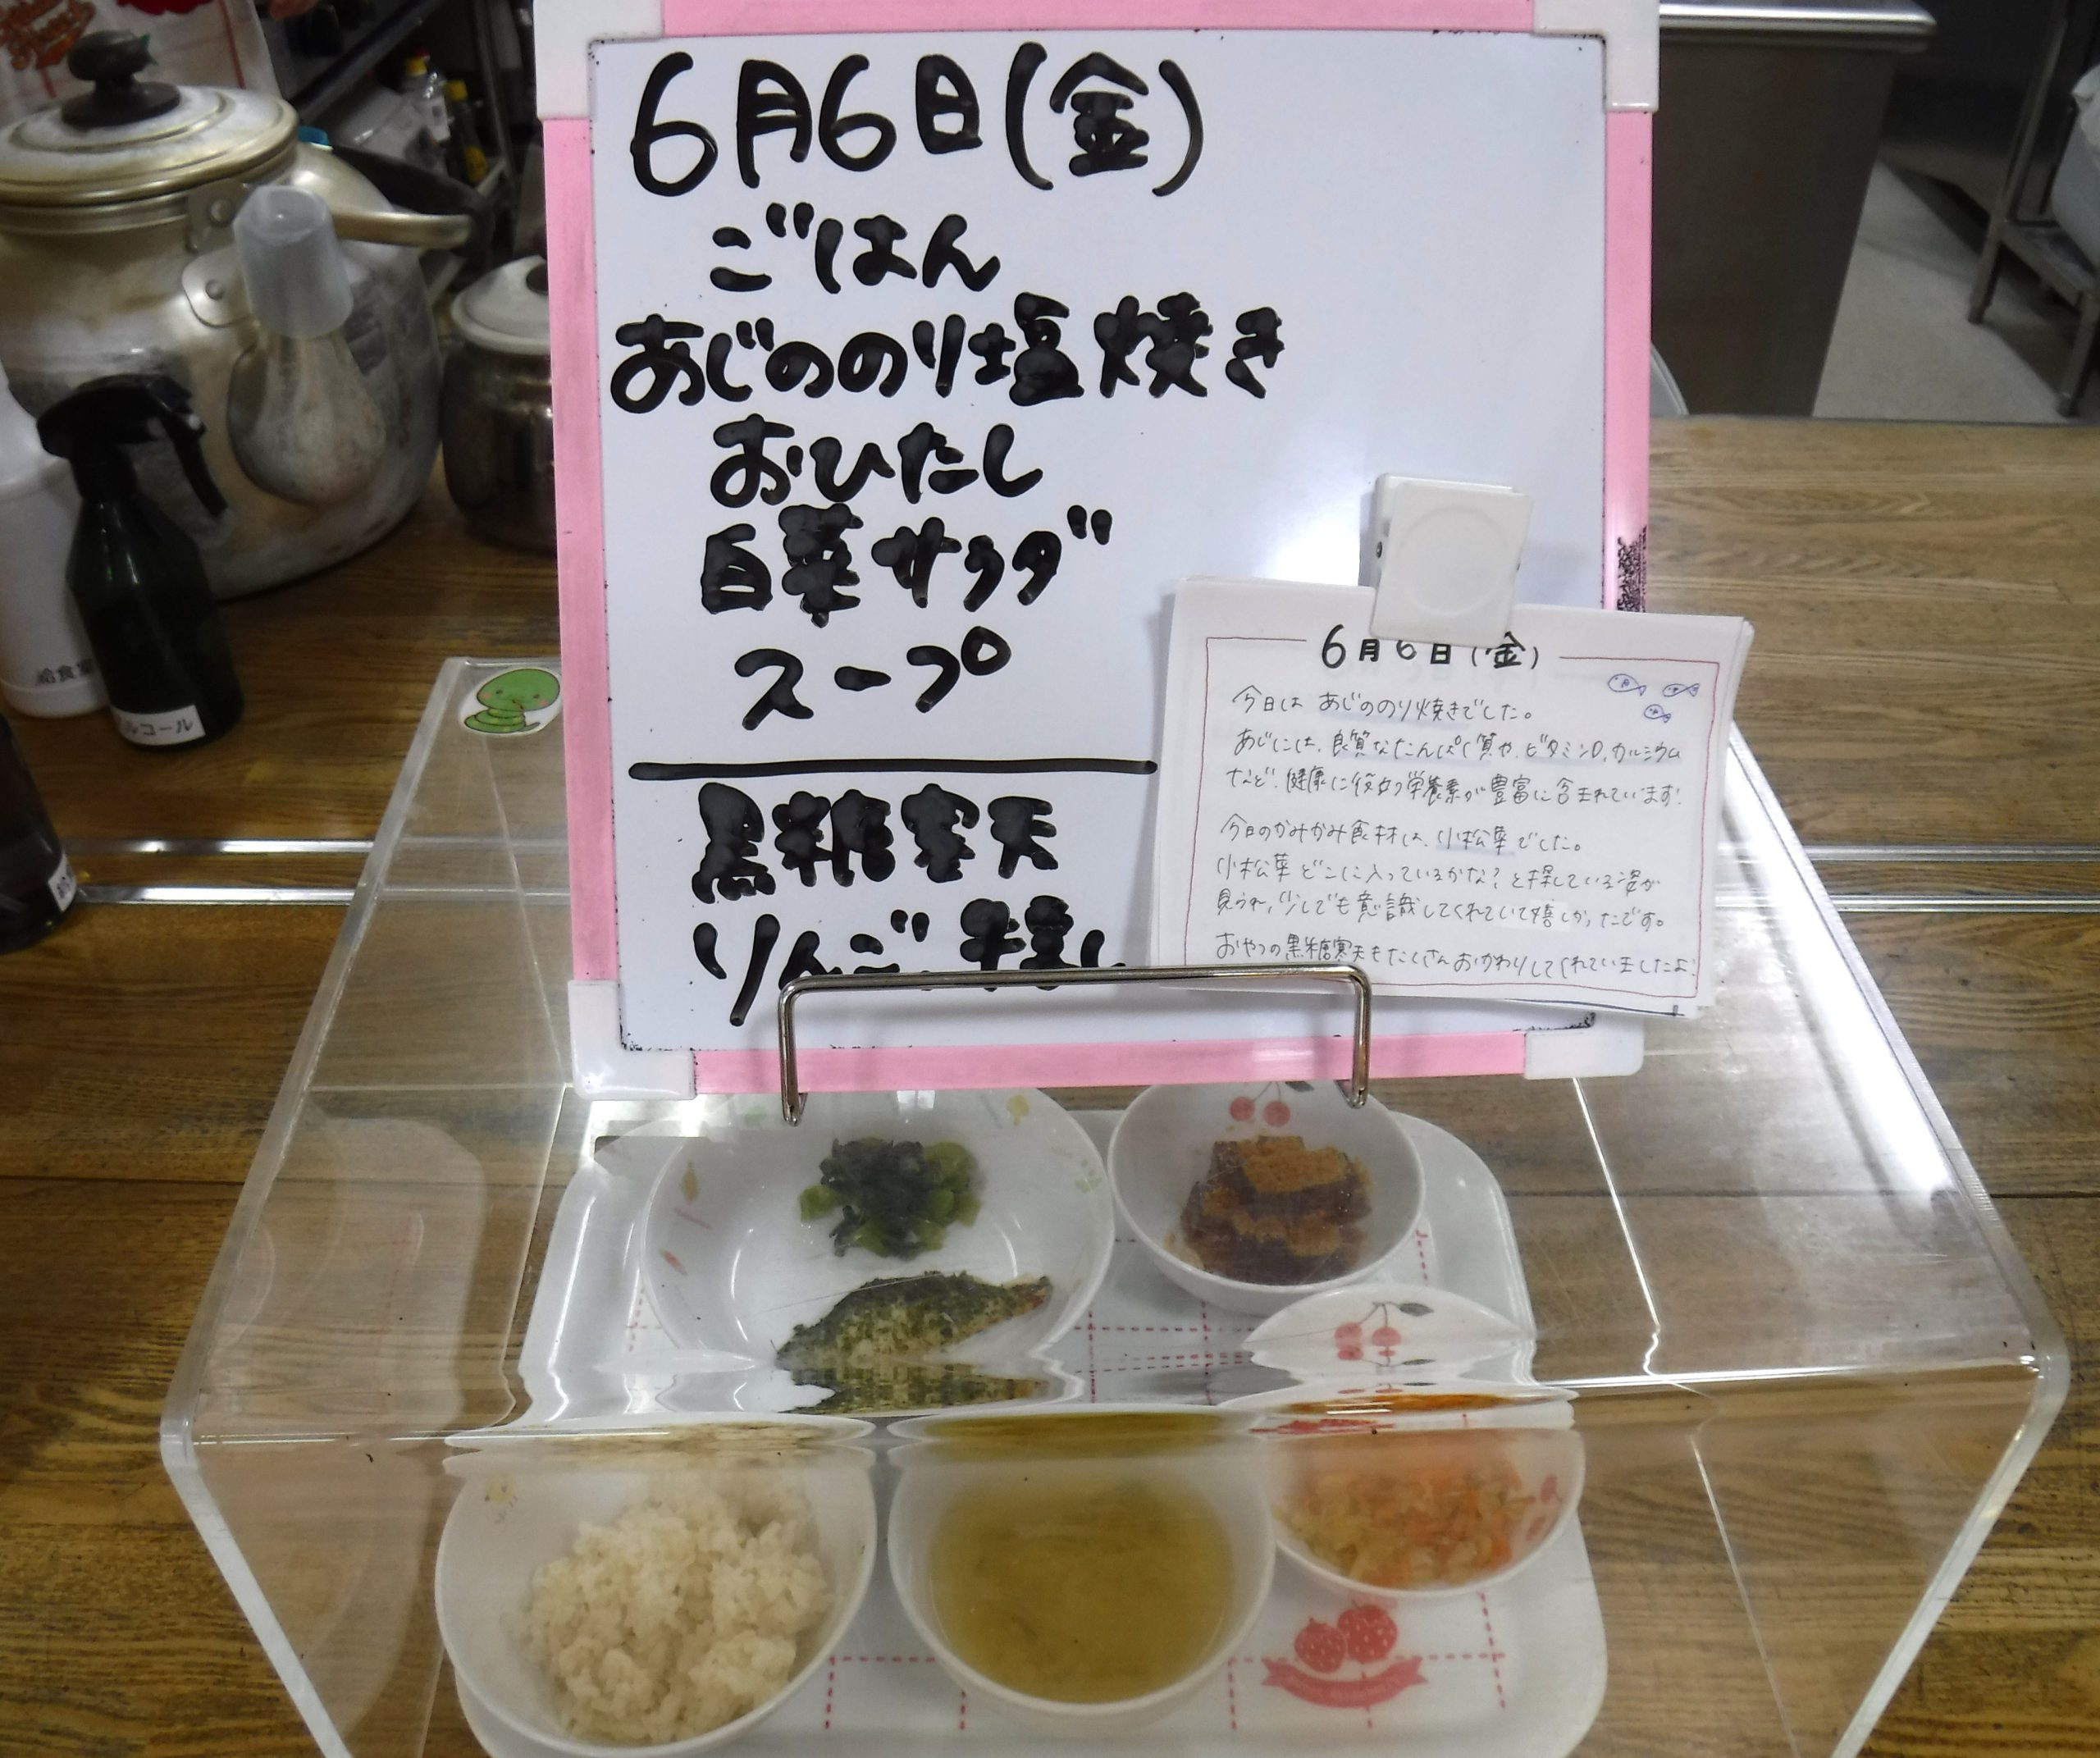 6月6日(金)
ごはん
あじののり塩焼き
おひたし
白菜サラダ
スープ
黒糖寒天
りんご、煮干し
6月6日(金)
今日は あじののり焼きでした。
あじには、良質なたんぱく質や、ビタミンD、カルシウム
など、健康に役立つ栄養素が豊富に含まれています!
今日のかみかみ食材は、小松菜でした。
小松菜どこに入っているかな?と探している姿が
見られ、少しでも意識してくれていて嬉しかったです。
おやつの黒糖寒天もたくさんおかわりしてくれていましたよ!
給食室
ルコール